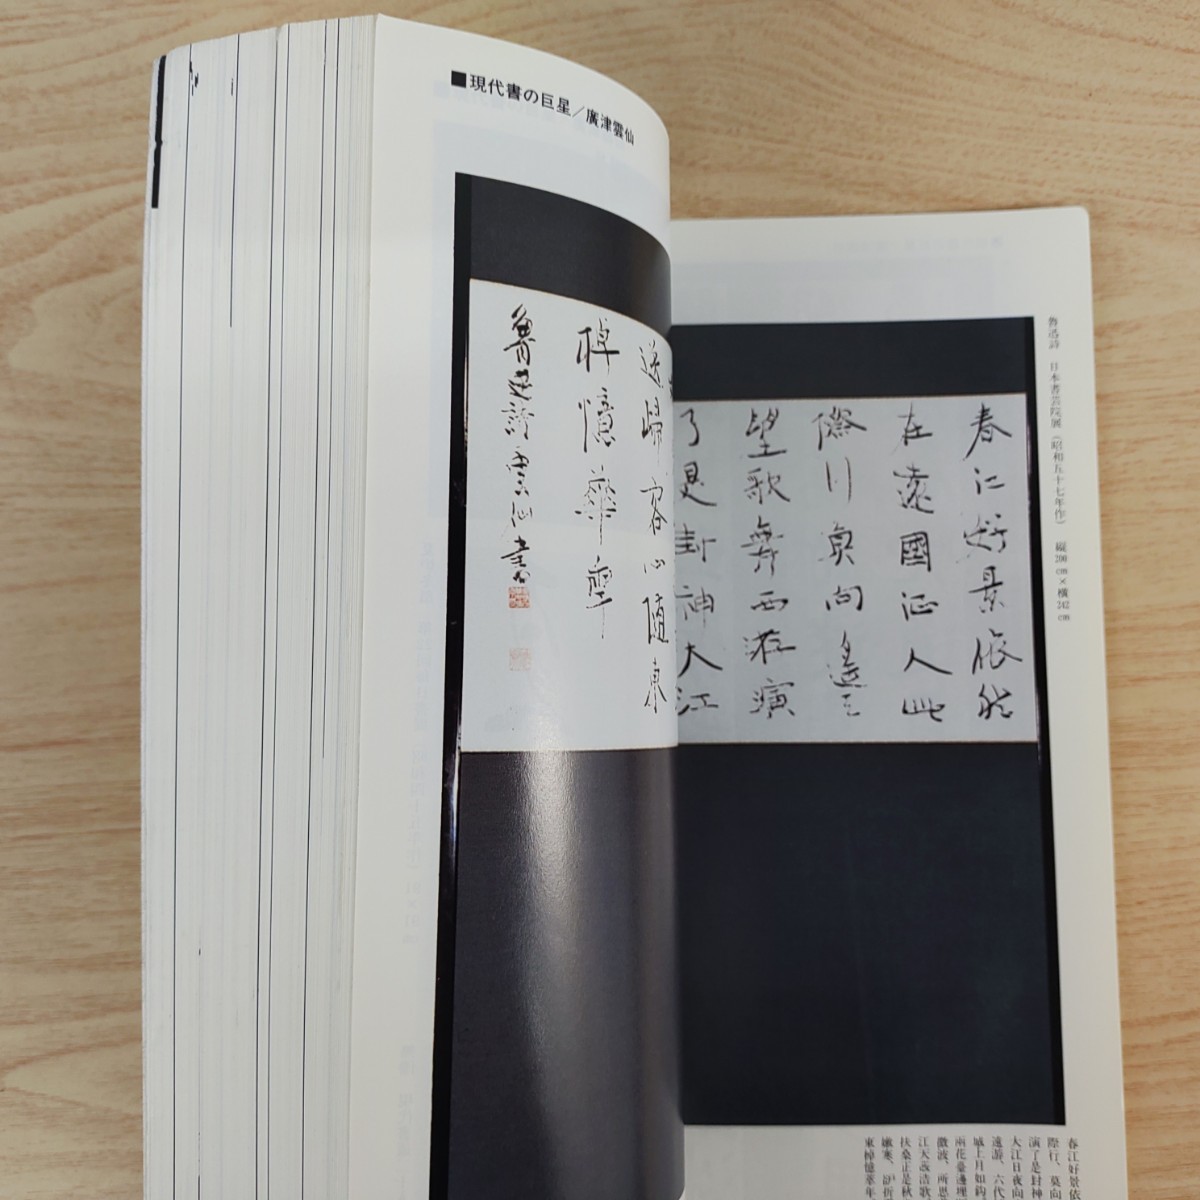 ■現代書の巨星／廣津雲仙
魯迅詩　日本書芸院展（昭和五十七年作）　縦200cm×横242cm
春江好景依然
在遠國征人此
際行莫向遙天
望歌舞西游演
了是封神大江
送歸客心隨東
棹憶華年
魯迅詩雲仙書
春江好景依
際行、莫向
演了是封神
大江日夜向
遠游、六代
城上月如鉤
雨花臺邊埋
微波、所思
江天發浩歌
扶桑正是秋
嫩寒、卻折
東棹憶華年